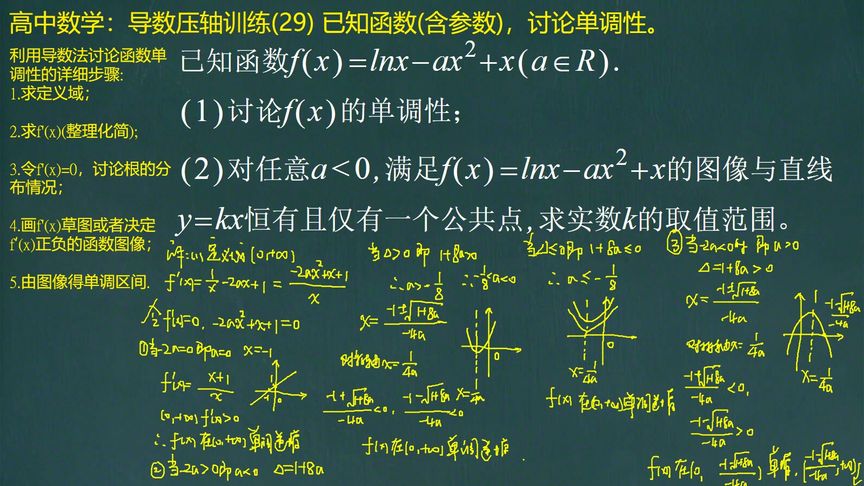 高中数学：导数压轴训练(29) 已知函数(含参数)，讨论单调性。
利用导数法讨论函数单
调性的详细步骤:
1.求定义域；
2.求f'(x)(整理化简);
3.令f'(x)=0，讨论根的分
布情况；
4.画f'(x)草图或者决定
f'(x)正负的函数图像；
5.由图像得单调区间.
已知函数f(x)=lnx-ax²+x(a∈R).
(1)讨论f(x)的单调性；
(2)对任意a<0,满足f(x)=lnx-ax²+x的图像与直线
y=kx恒有且仅有一个公共点,求实数k的取值范围。
解:(1) 定义域 (0,+∞)
f'(x)=1/x-2ax+1=(-2ax²+x+1)/x
令f'(x)=0, -2ax²+x+1=0
①当-2a=0即a=0 x=-1
f'(x)=(x+1)/x
-1 0
(0,+∞) f'(x)>0
∴f(x)在(0,+∞)单调递增
②当-2a>0即a<0 Δ=1+8a
当Δ>0 即 1+8a>0
∴a>-1/8 ∴-1/8<a<0
x=(-1±√(1+8a))/(-4a)
对称轴x=1/(4a)
0
x=1/(4a)
(-1+√(1+8a))/(-4a)<0, (-1-√(1+8a))/(-4a)<0
f(x)在(0,+∞)单调递增
当Δ≤0即 1+8a≤0
∴a≤-1/8
0
x=1/(4a)
f(x)在(0,+∞)单调递增
③当-2a<0时 即a>0
Δ=1+8a>0
x=(-1±√(1+8a))/(-4a)
对称轴x=1/(4a)
0
(-1-√(1+8a))/(-4a)
x=1/(4a)
(-1+√(1+8a))/(-4a)<0,
(-1-√(1+8a))/(-4a)>0
f(x)在(0, (-1-√(1+8a))/(-4a))单增, ((-1-√(1+8a))/(-4a),+∞)